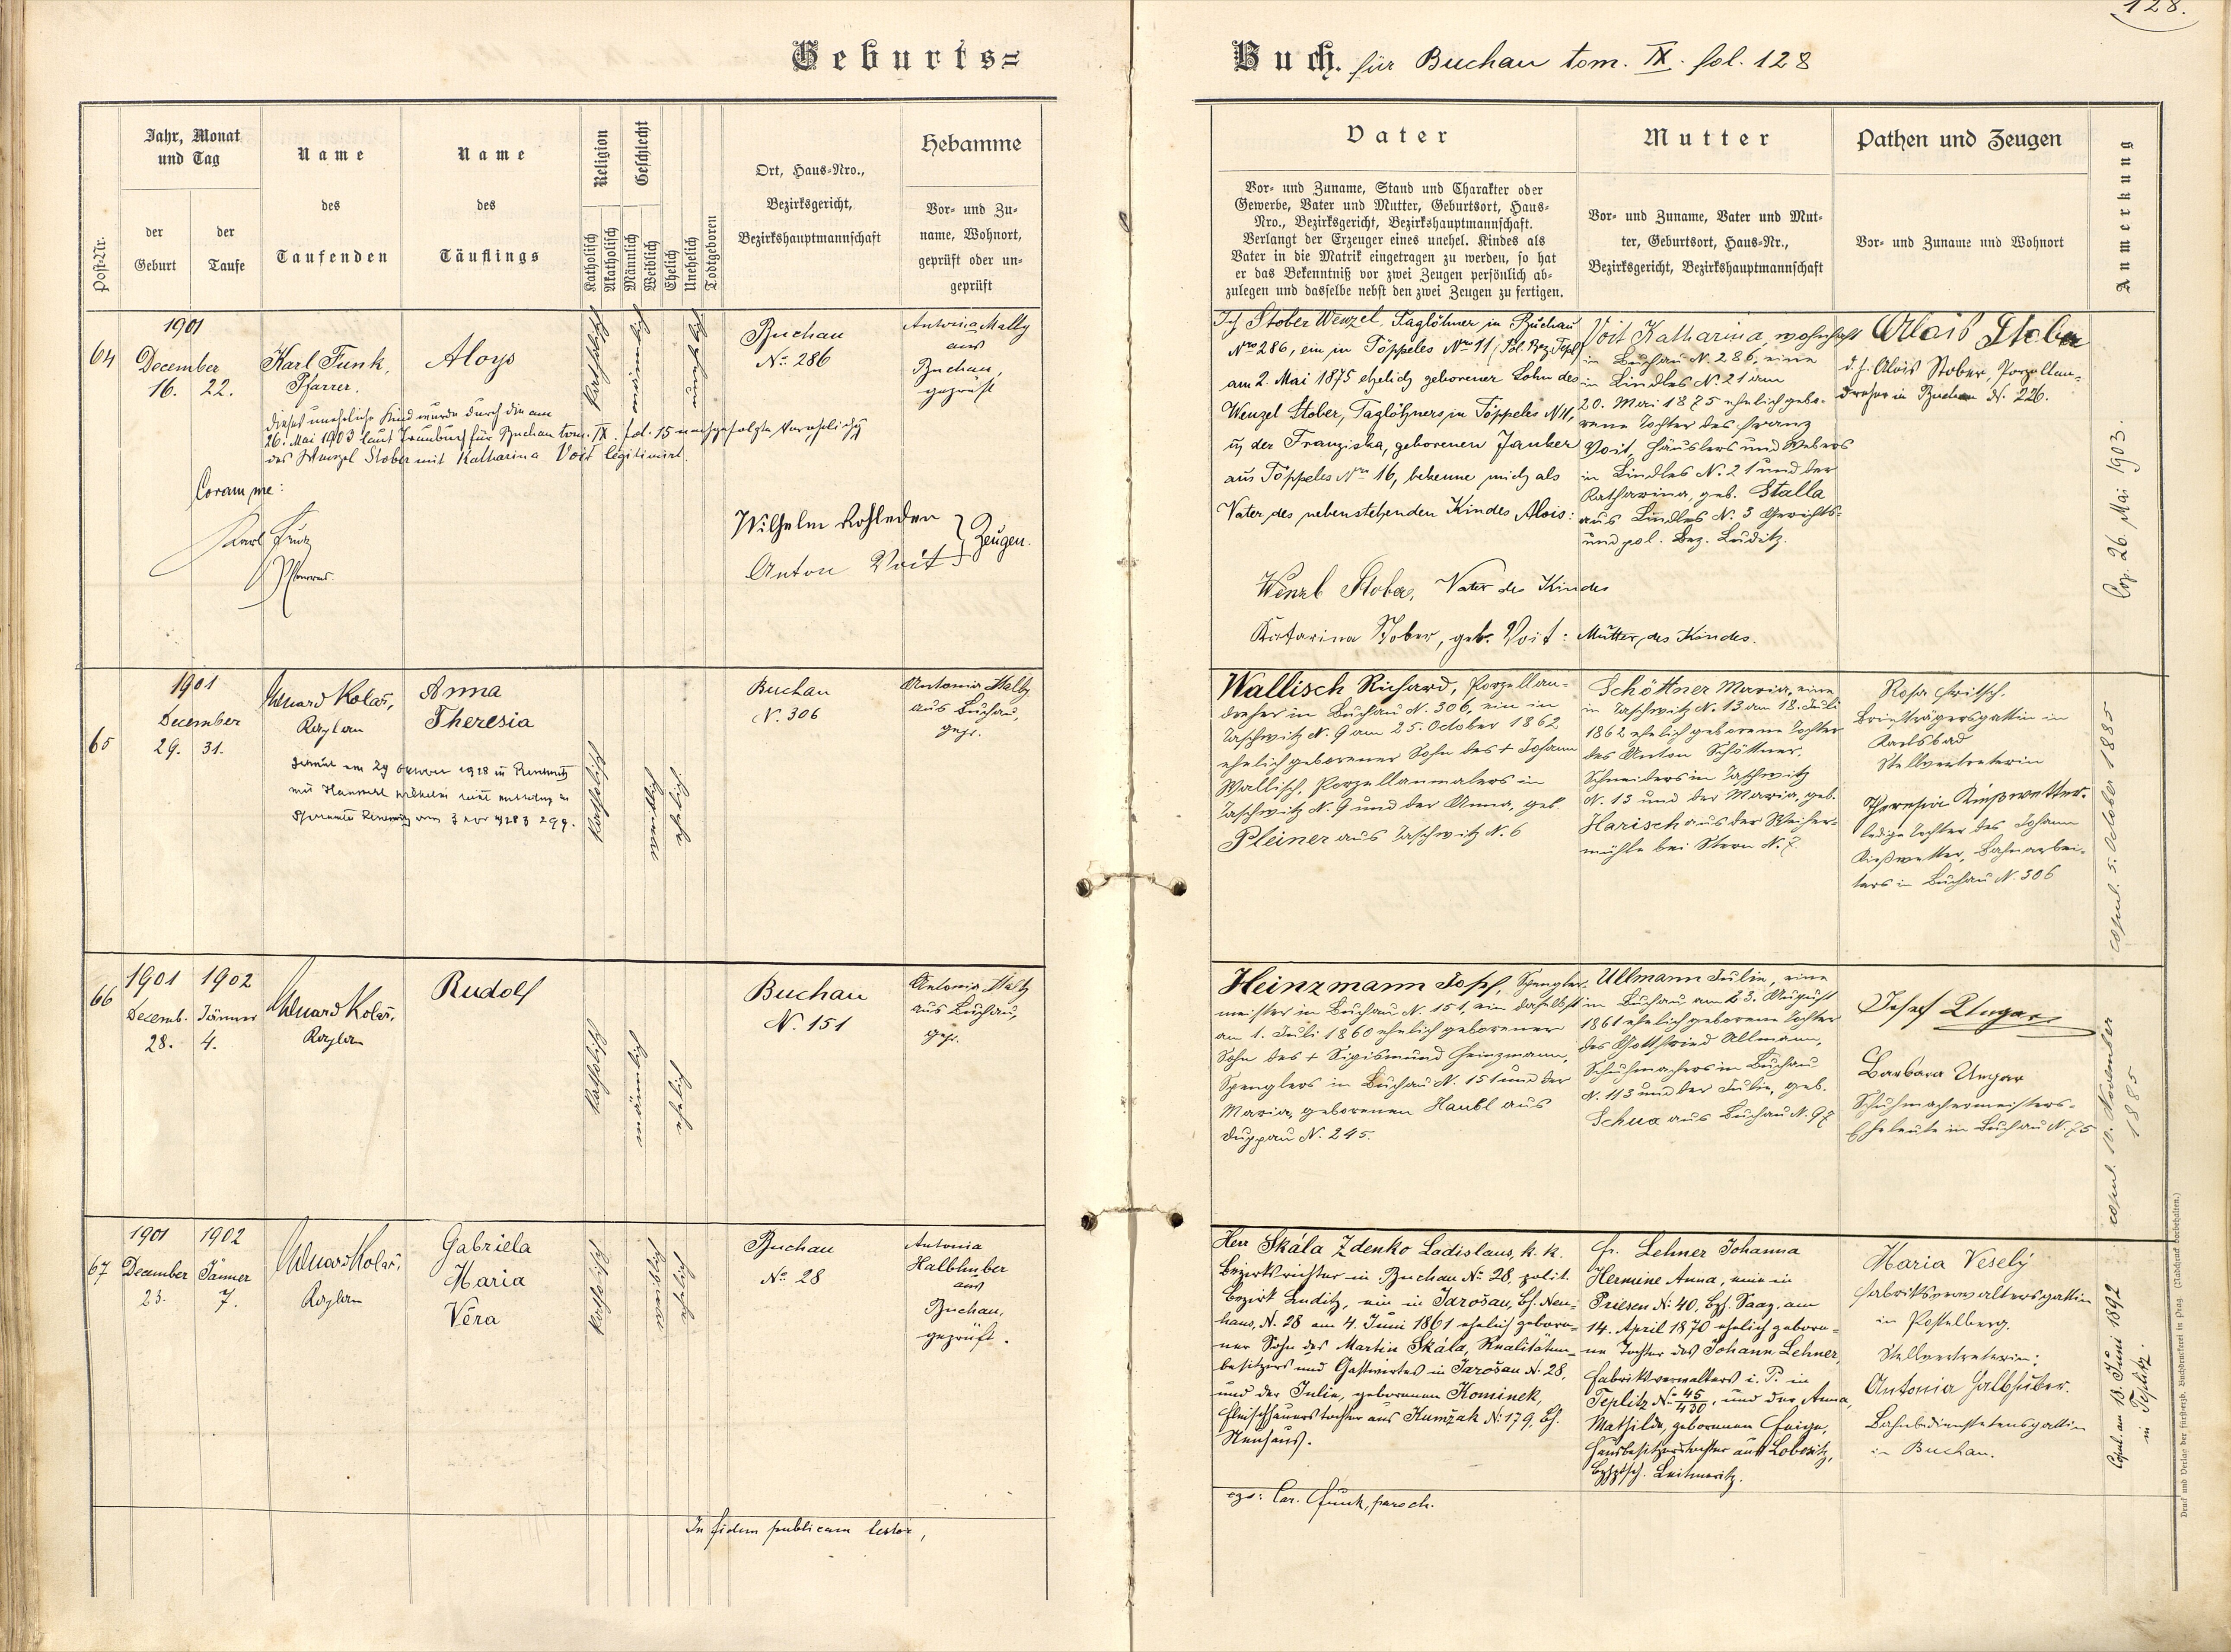 128.
Geburts=
Buch. für Buchau tom. IX. fol. 128
Post-Nr.
Jahr, Monat
und Tag
der
Geburt
der
Taufe
Name
des
Taufenden
Name
des
Täuflings
Religion
Katholisch
Akatholisch
Geschlecht
Männlich
Weiblich
Ehelich
Unehelich
Todtgeboren
Ort, Haus-Nro.,
Bezirksgericht,
Bezirkshauptmannschaft
Hebamme
Vor- und Zu-
name, Wohnort,
geprüft oder un-
geprüft
Vater
Vor- und Zuname, Stand und Charakter oder
Gewerbe, Vater und Mutter, Geburtsort, Haus-
Nro., Bezirksgericht, Bezirkshauptmannschaft.
Verlangt der Erzeuger eines unehel. Kindes als
Vater in die Matrik eingetragen zu werden, so hat
er das Bekenntniß vor zwei Zeugen persönlich ab-
zulegen und dasselbe nebst den zwei Zeugen zu fertigen.
Mutter
Vor- und Zuname, Vater und Mut-
ter, Geburtsort, Haus-Nr.,
Bezirksgericht, Bezirkshauptmannschaft
Pathen und Zeugen
Vor- und Zuname und Wohnort
Anmerkung
64
1901
December
16. 22.
Karl Funk,
Pfarrer.
Aloys
katholisch
männlich
unehelich
Buchau
No. 286
Antonia Mally
aus
Buchau,
geprüft
Dieses uneheliche Kind wurde durch die am
26. Mai 1903 laut Traubuch für Buchau tom. IX. fol. 15 nachgefolgte Verehelichg
des Wenzel Stober mit Katharina Voit legitimirt.
Coram me:
Karl Funk
Pfarrer.
Wilhelm Rohleder
Anton Voit } Zeugen.
Ich Stober Wenzel, Taglöhner in Buchau
Nro 286, ein in Töppeles Nro 11 (Pol. Bez. Tepl)
am 2. Mai 1875 ehelich geborener Sohn des
Wenzel Stober, Taglöhners in Töppeles N 11,
u. der Franziska, geborenen Janker
aus Töppeles Nro 16, bekenne mich als
Vater des nebenstehenden Kindes Alois:
Wenzl Stober, Vater des Kindes
Katarina Stober, geb. Voit: Mutter des Kindes.
Voit Katharina, wohnhaft
in Buchau N. 286, eine
in Lindles N. 21 am
20. Mai 1875 ehelich gebo-
rene Tochter des Franz
Voit, Häuslers und Webers
in Lindles N. 21 und der
Katharina, geb. Stalla
aus Lindles N. 3 Gerichts-
und pol. Bez. Luditz.
Alois Stober
d. h. Alois Stober, Porzellan-
dreher in Buchau N. 226.
Cop. 26. Mai 1903.
65
1901
December
29. 31.
Eduard Kolař,
Kaplan
Anna
Theresia
katholisch
weiblich
ehelich
Buchau
N. 306
Antonia Mally
aus Buchau,
gepr.
Wallisch Richard, Porzellan-
dreher in Buchau N. 306, ein in
Taschwitz N. 9 am 25. October 1862
ehelich geborener Sohn des + Johann
Wallisch, Porzellanmalers in
Taschwitz N. 9 und der Anna, geb.
Pleiner aus Taschwitz N. 6
Schöttner Maria, eine
in Taschwitz N. 13 am 18. Juli
1862 ehelich geborene Tochter
des Anton Schöttner,
Schneiders in Taschwitz
N. 13 und der Maria, geb.
Harisch aus der Weiher-
mühle bei Stern N. 7.
Rosa Fritsch,
Briefträgersgattin in
Karlsbad
Stellvertreterin
Theresia Kießwetter,
ledige Tochter des Johann
Kießwetter, Bahnarbei-
ters in Buchau N. 306
copul. 5. October 1885
66
1901 1902
Decemb. Jänner
28. 4.
Eduard Kolař,
Kaplan
Rudolf
katholisch
männlich
ehelich
Buchau
N. 151
Antonia Mally
aus Buchau,
gepr.
Heinzmann Josef, Spengler-
meister in Buchau N. 151, ein daselbst
am 1. Juli 1860 ehelich geborener
Sohn des + Sigismund Heinzmann,
Spenglers in Buchau N. 151 und der
Maria, geborenen Haubl aus
Duppau N. 245.
Ullmann Julie, eine
in Buchau am 23. August
1861 ehelich geborene Tochter
des Gottfried Ullmann,
Schuhmachers in Buchau
N. 113 und der Julie, geb.
Schua aus Buchau N. 97
Josef Ungar
Barbara Ungar
Schuhmachermeisters-
Eheleute in Buchau N. 75
copul. 10. November
1885
67
1901 1902
December Jänner
23. 7.
Eduard Kolař,
Kaplan
Gabriela
Maria
Věra
katholisch
weiblich
ehelich
Buchau
No. 28
Antonia
Halbhuber
aus
Buchau,
geprüft.
Herr Skála Zdenko Ladislaus, k. k.
Bezirksrichter in Buchau No. 28, polit.
Bezirk Luditz, ein in Jarošau, Bh. Neu-
haus, N. 28 am 4. Juni 1861 ehelich gebore-
ner Sohn des Martin Skála, Realitäten-
besitzers und Gastwirtes in Jarošau N. 28,
und der Julie, geborenen Kominek,
Fleischhauerstochter aus Kumžak N. 179, Bh.
Neuhaus.
Fr. Lehner Johanna
Hermine Anna, eine in
Priesen N. 40, Bh. Saaz, am
14. April 1870 ehelich gebore-
ne Tochter des Johann Lehner,
Fabriksverwalters i. P. in
Teplitz No. 45/430, und der Anna,
Mathilde, geborenen Feige,
Hausbesitzerstochter aus Lobositz,
Bzhptsch. Leitmeritz.
Maria Veselý
Fabriksverwaltersgattin
in Postelberg.
Stellvertreterin:
Antonia Halbhuber.
Bahnbedienstetensgattin
in Buchau.
Copul. am 18. Juni 1892
in Teplitz.
In fidem publicam testor,
ego: Car. Funk, paroch.
Druck und Verlag der fürsterzb. Buchdruckerei in Prag. (Nachdruck vorbehalten.)